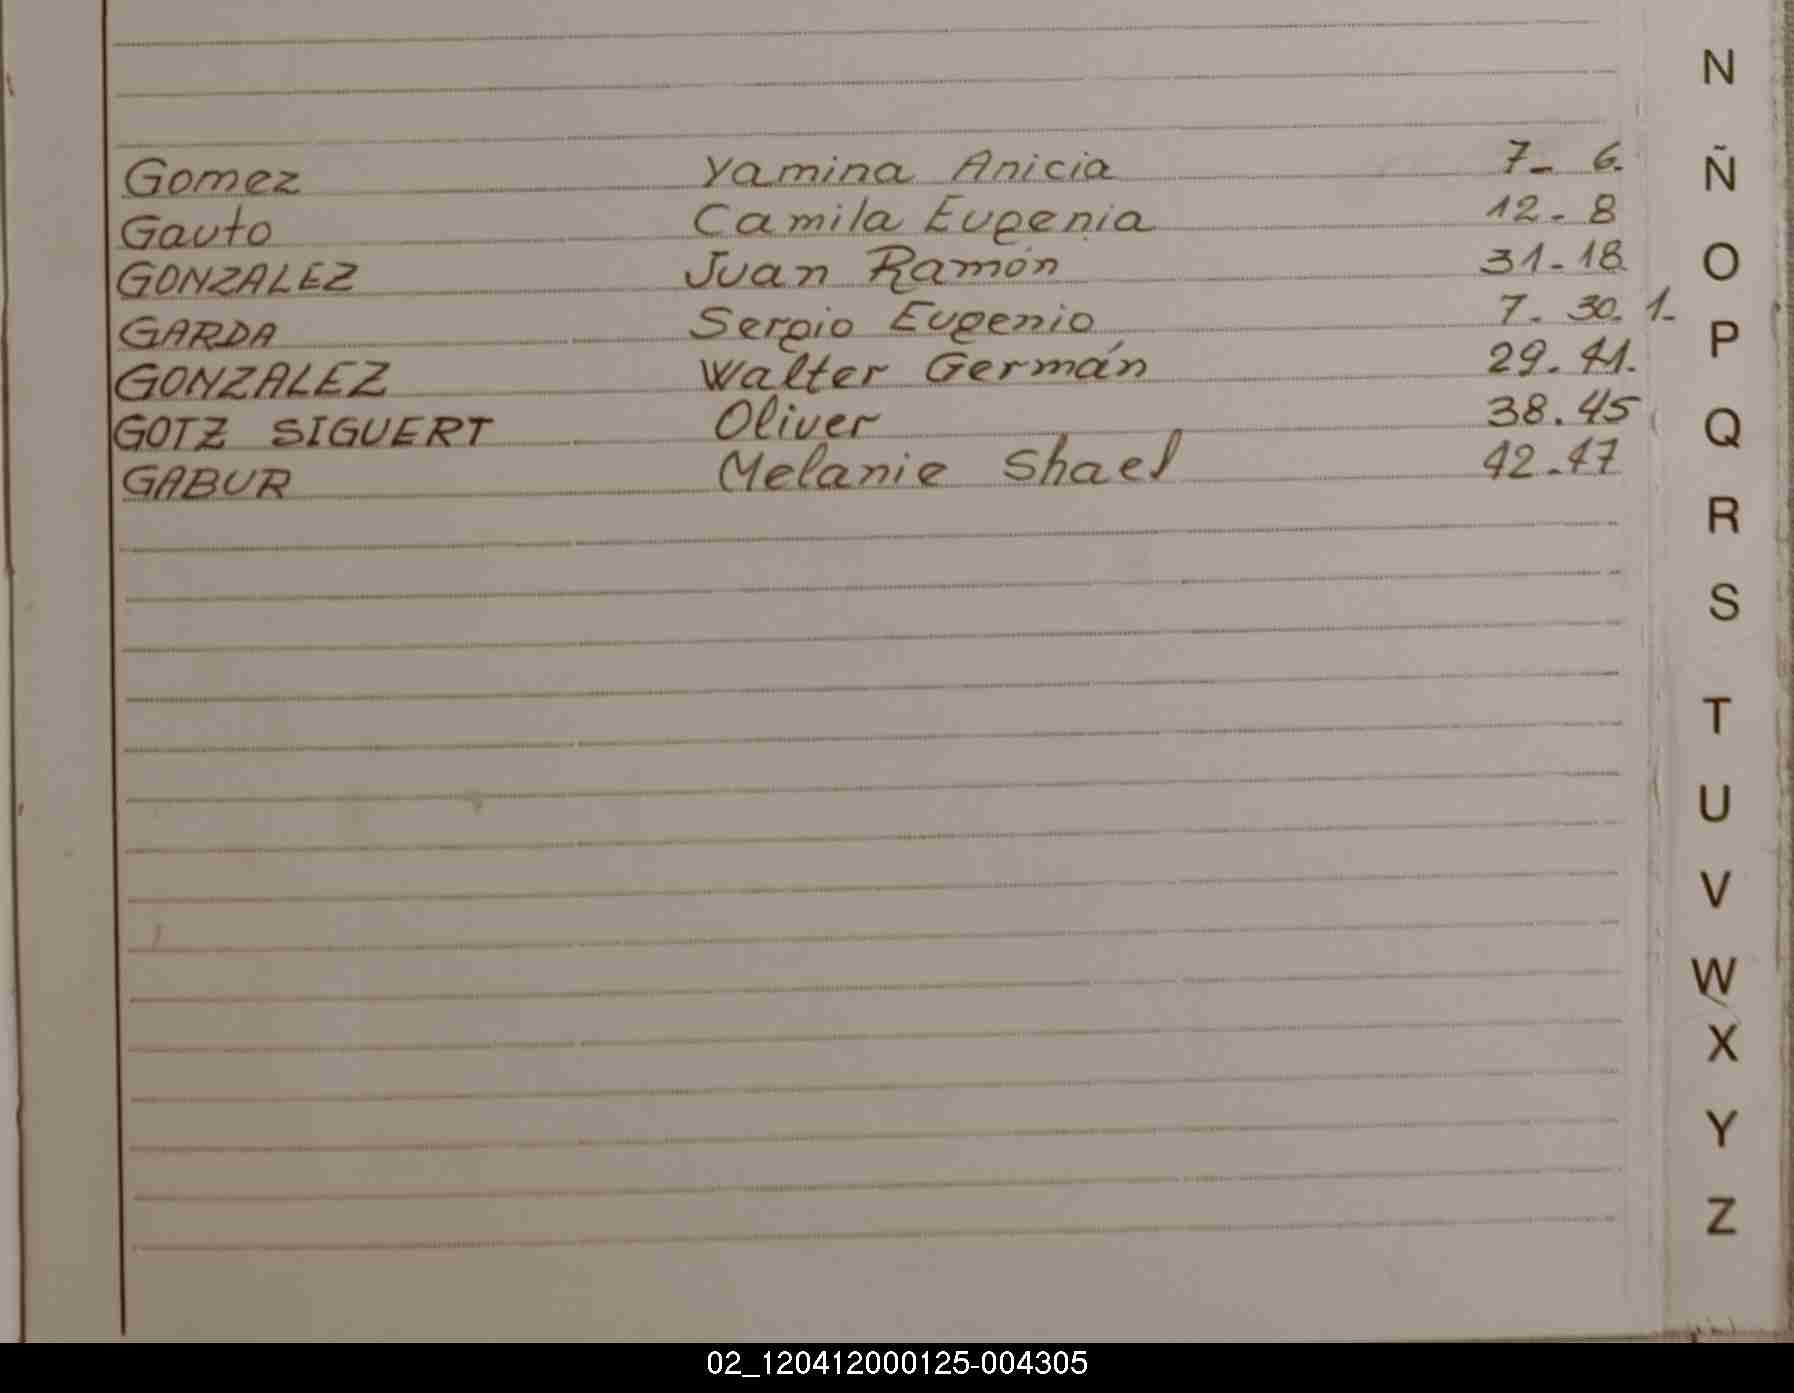 Gomez Yamina Anicia 7- 6.
Gauto Camila Eugenia 12- 8
GONZALEZ Juan Ramón 31-18
GARDA Sergio Eugenio 7. 30. 1-
GONZALEZ Walter Germán 29. 41.
GOTZ SIGUERT Oliver 38. 45
GABUR Melanie Shael 42-47
N
Ñ
O
P
Q
R
S
T
U
V
W
X
Y
Z
02_120412000125-004305